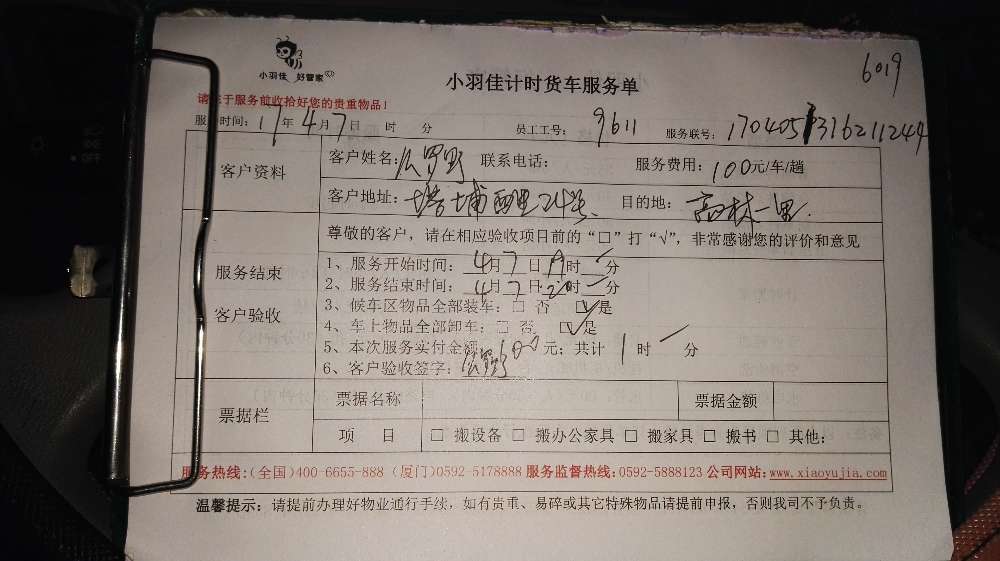 6019
小羽佳 好管家
小羽佳计时货车服务单
请在于服务前收拾好您的贵重物品!
服务时间: 17年 4月 7日 时 分 员工工号: 9611 服务联号:
客户资料
客户姓名: 联系电话: 服务费用: 100元/车/趟
客户地址: 塔埔西里24号 目的地: 高林一里
尊敬的客户,请在相应验收项目前的“□”打“√”,非常感谢您的评价和意见
服务结束
客户验收
1、服务开始时间: 4月 7日 19时 分
2、服务结束时间: 4月 7日 20时 分
3、候车区物品全部装车: □ 否 □√是
4、车上物品全部卸车: □ 否 □√是
5、本次服务实付金额 100元; 共计 1时 分
6、客户验收签字:
票据栏
票据名称 票据金额
项 目 □ 搬设备 □ 搬办公家具 □ 搬家具 □ 搬书 □ 其他:
服务热线:(全国)400-6655-888 (厦门)0592-5178888 服务监督热线:0592-5888123 公司网站:www.xiaoyujia.com
温馨提示: 请提前办理好物业通行手续,如有贵重、易碎或其它特殊物品请提前申报,否则我司不予负责。